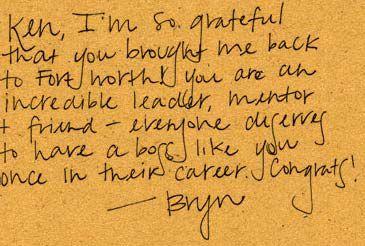 Ken, I'm so grateful
that you brought me back
to Fort Worth! you are an
incredible leader, mentor
+ friend - everyone deserves
to have a boss like you
once in their career. Congrats!
— Bryn